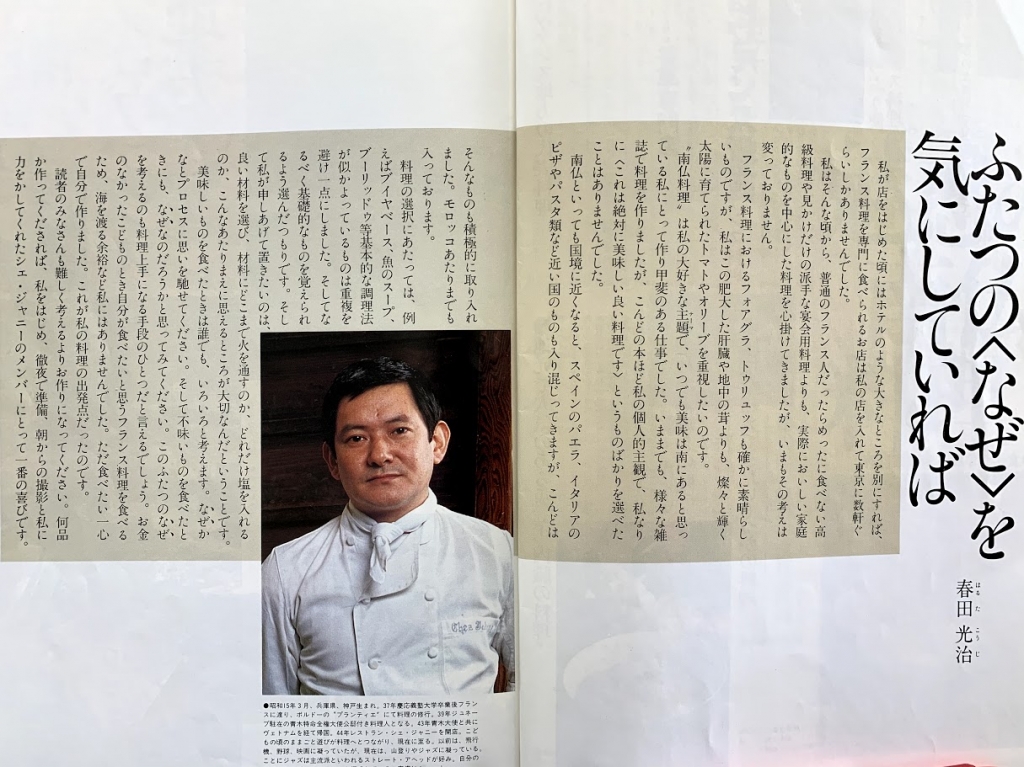 ふたつの〈なぜ〉を
気にしていれば
春田 光治
はるだ こうじ
私が店をはじめた頃にはホテルのような大きなところを別にすれば、
フランス料理を専門に食べられるお店は私の店を入れて東京に数軒ぐ
らいしかありませんでした。
私はそんな頃から、普通のフランス人だったらめったに食べない高
級料理や見かけだけの派手な宴会用料理よりも、実際においしい家庭
的なものを中心にした料理を心掛けてきましたが、いまもその考えは
変っておりません。
フランス料理におけるフォアグラ、トゥリュッフも確かに素晴らし
いものですが、私はこの肥大した肝臓や地中の茸よりも、燦々と輝く
太陽に育てられたトマトやオリーブを重視したいのです。
〝南仏料理〟は私の大好きな主題で、いつでも美味は南にあると思っ
ている私にとって作り甲斐のある仕事でした。いままでも、様々な雑
誌で料理を作りましたが、こんどの本ほど私の個人的主観で、私なり
に〈これは絶対に美味しい良い料理です〉というものばかりを選べた
ことはありませんでした。
南仏といっても国境に近くなると、スペインのパエラ、イタリアの
ピザやパスタ類など近い国のものも入り混じってきますが、こんどは
そんなものも積極的に取り入れ
ました。モロッコあたりまでも
入っております。
料理の選択にあたっては、例
えばブイヤベース、魚のスープ、
ブーリッドゥ等基本的な調理法
が似かよっているものは重複を
避け一点にしました。そしてな
るべく基礎的なものを覚えられ
るよう選んだつもりです。そし
て私が申しあげて置きたいのは、
良い材料を選び、材料にどこまで火を通すのか、どれだけ塩を入れる
のか、こんなあたりまえに思えるところが大切なんだということです。
美味しいものを食べたときは誰でも、いろいろと考えます。なぜか
なとプロセスに思いを馳せてください。そして不味いものを食べたと
きにも、なぜなのだろうかと思ってみてください。このふたつのなぜ
を考えるのも料理上手になる手段のひとつだと言えるでしょう。お金
のなかったこどものとき自分が食べたいと思うフランス料理を食べる
ため、海を渡る余裕など私にはありませんでした。ただ食べたい一心
で自分で作りました。これが私の料理の出発点だったのです。
読者のみなさんも難しく考えるよりお作りになってください。何品
か作ってくだされば、私をはじめ、徹夜で準備、朝からの撮影と私に
力をかしてくれたシェ・ジャニーのメンバーにとって一番の喜びです。
Chez
●昭和15年3月、兵庫県、神戸生まれ。37年慶応義塾大学卒業後フラン
スに渡り、ボルドーの〝プランティエ〟にて料理の修行。39年ジュネー
ブ駐在の青木特命全権大使公邸付き料理人となる。43年青木大使と共に
ヴェトナムを経て帰国。44年レストラン・シェ・ジャニーを開店。こど
もの頃のままごと遊びが料理へとつながり、現在に至る。以前は、飛行
機、野球、映画に凝っていたが、現在は、山登りやジャズに凝っている。
ことにジャズは主流派といわれるストレート・アヘッドが好み。自分の